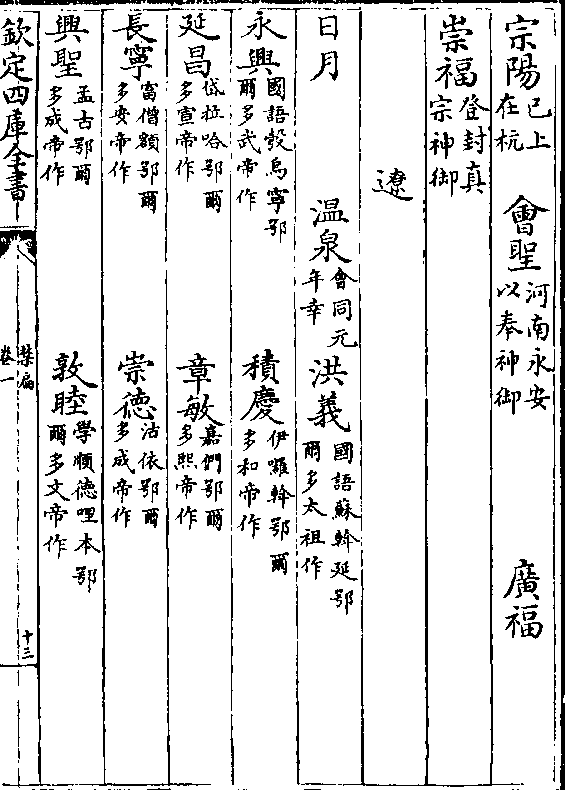 宗陽已上在杭 會聖河南永安以奉神御 廣福
崇福登封真宗神御
遼
日月 温泉會同元年幸 洪義國語蘇斡延鄂爾多太祖作
永興國語彀烏寧鄂爾多武帝作 積慶伊囉斡鄂爾多和帝作
延昌岱拉哈鄂爾多宣帝作 章敏嘉們鄂爾多熙帝作
長寧富僧額鄂爾多安帝作 崇德沽依鄂爾多成帝作
興聖孟古鄂爾多成帝作 敦睦學順德哩本鄂爾多文帝作
欽定四庫全書 卷一 十三